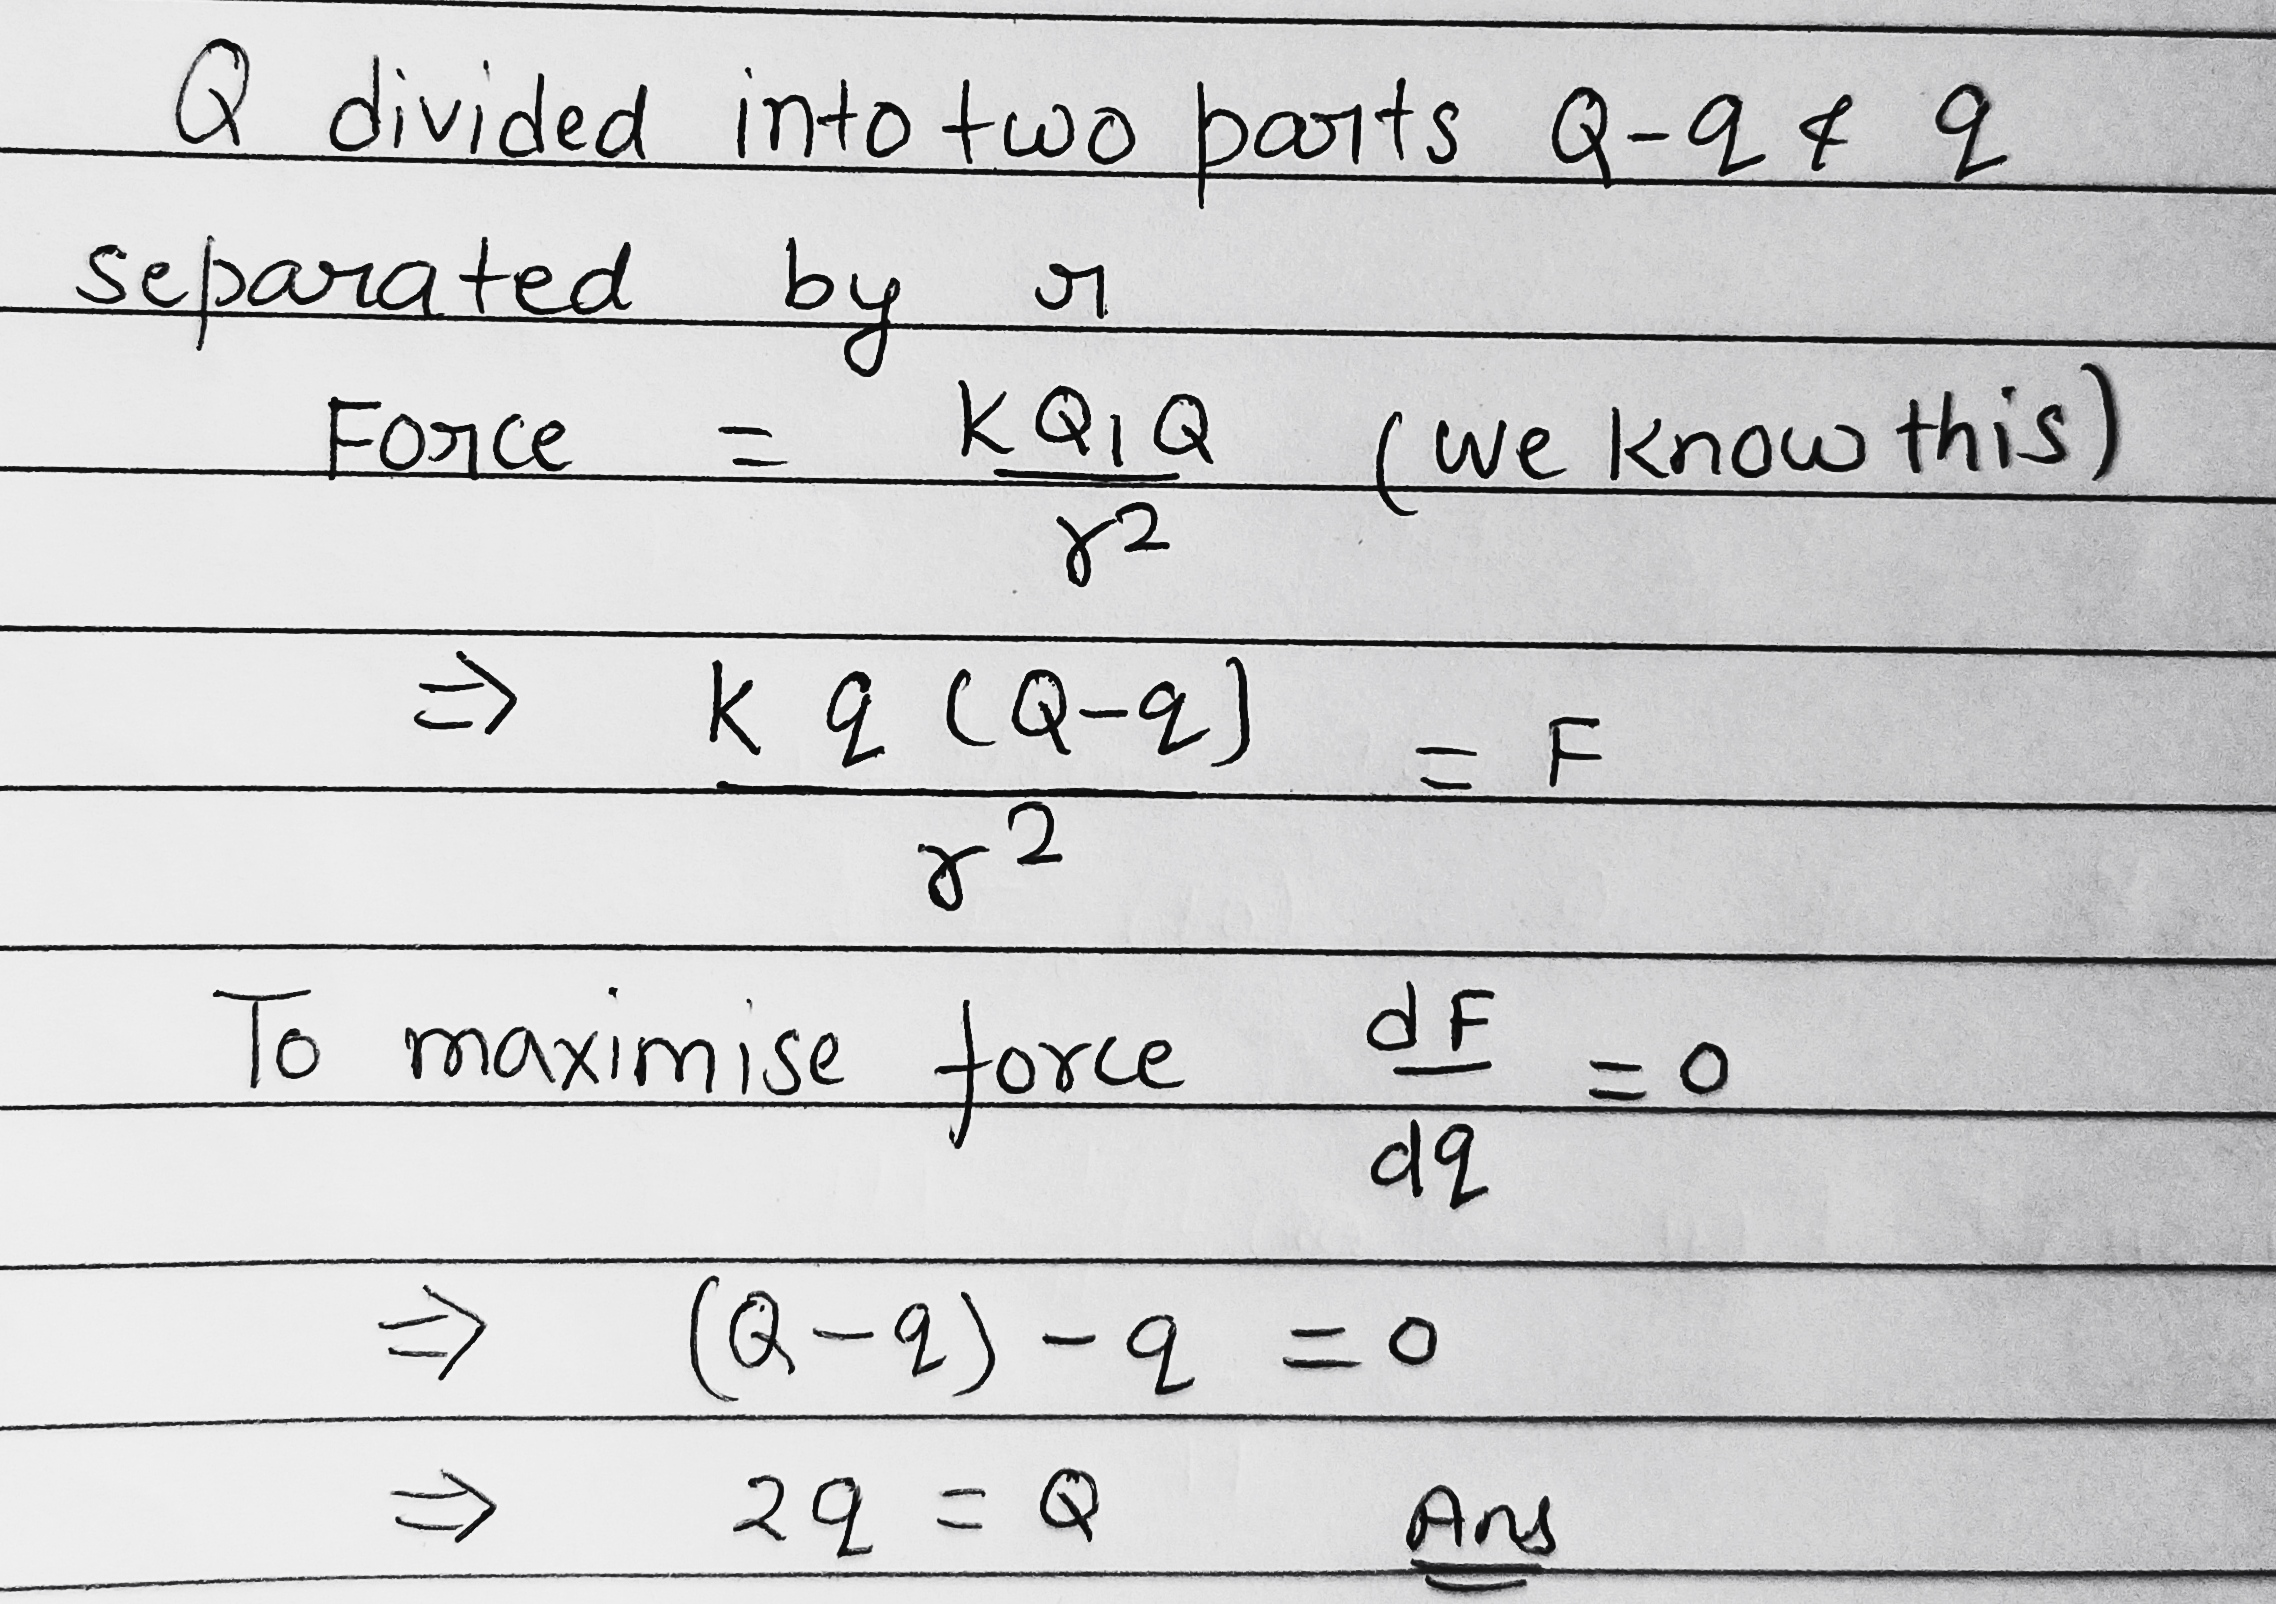 Q divided into two parts Q-q & q
separated by r
Force = KQ₁Q/r² (we know this)
⇒ K q (Q-q)/r² = F
To maximise force dF/dq = 0
⇒ (Q-q) - q = 0
⇒ 2q = Q Ans